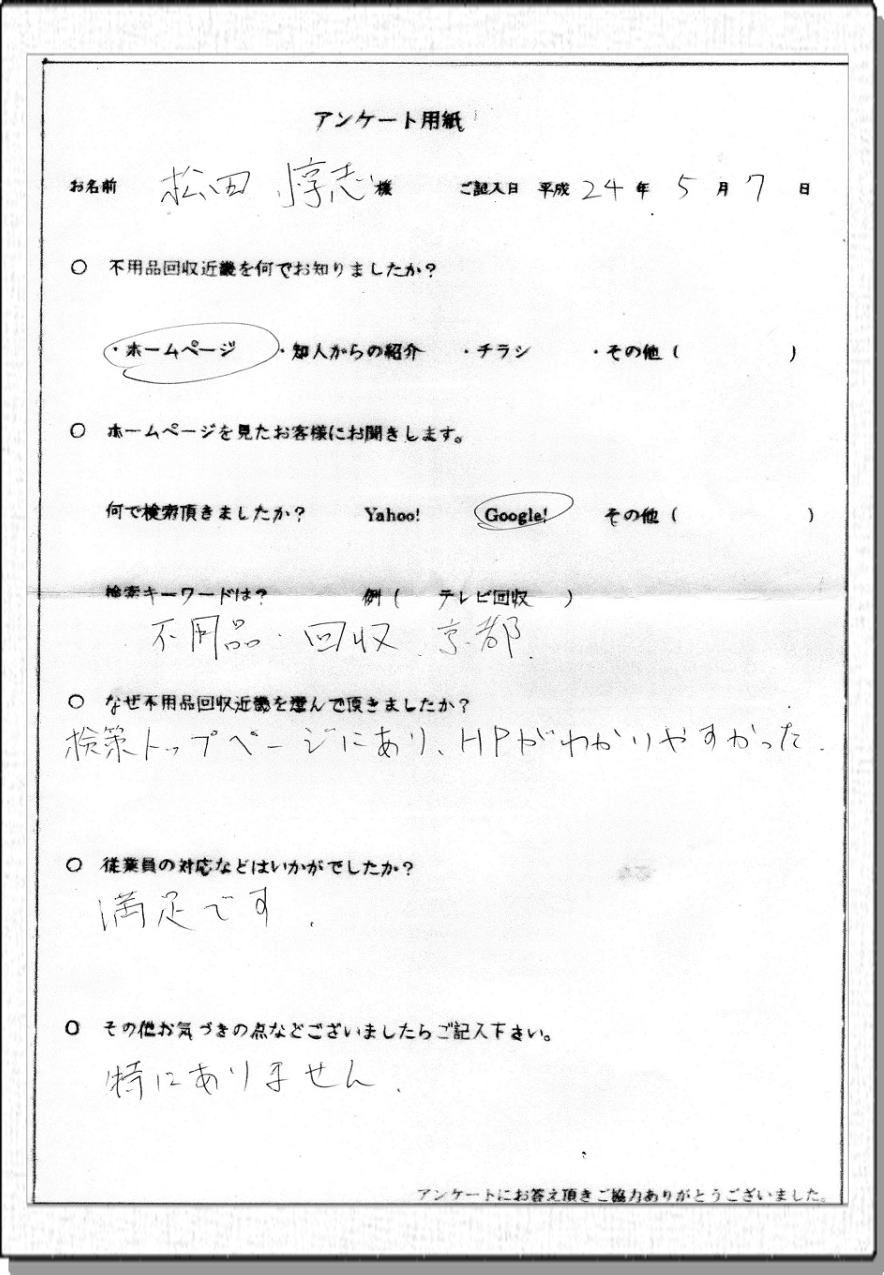 アンケート用紙
お名前 松田 惇志 様 ご記入日 平成 24 年 5 月 7 日
○ 不用品回収近畿を何でお知りましたか？
・ホームページ ・知人からの紹介 ・チラシ ・その他（ ）
○ ホームページを見たお客様にお聞きします。
何で検索頂きましたか？ Yahoo! Google! その他（ ）
検索キーワードは？ 例（ テレビ回収 ）
不用品・回収 京都.
○ なぜ不用品回収近畿を選んで頂きましたか？
検策トップページにあり、HPがわかりやすかった.
○ 従業員の対応などはいかがでしたか？
満足です.
○ その他お気づきの点などございましたらご記入下さい。
特にありません.
アンケートにお答え頂きご協力ありがとうございました。